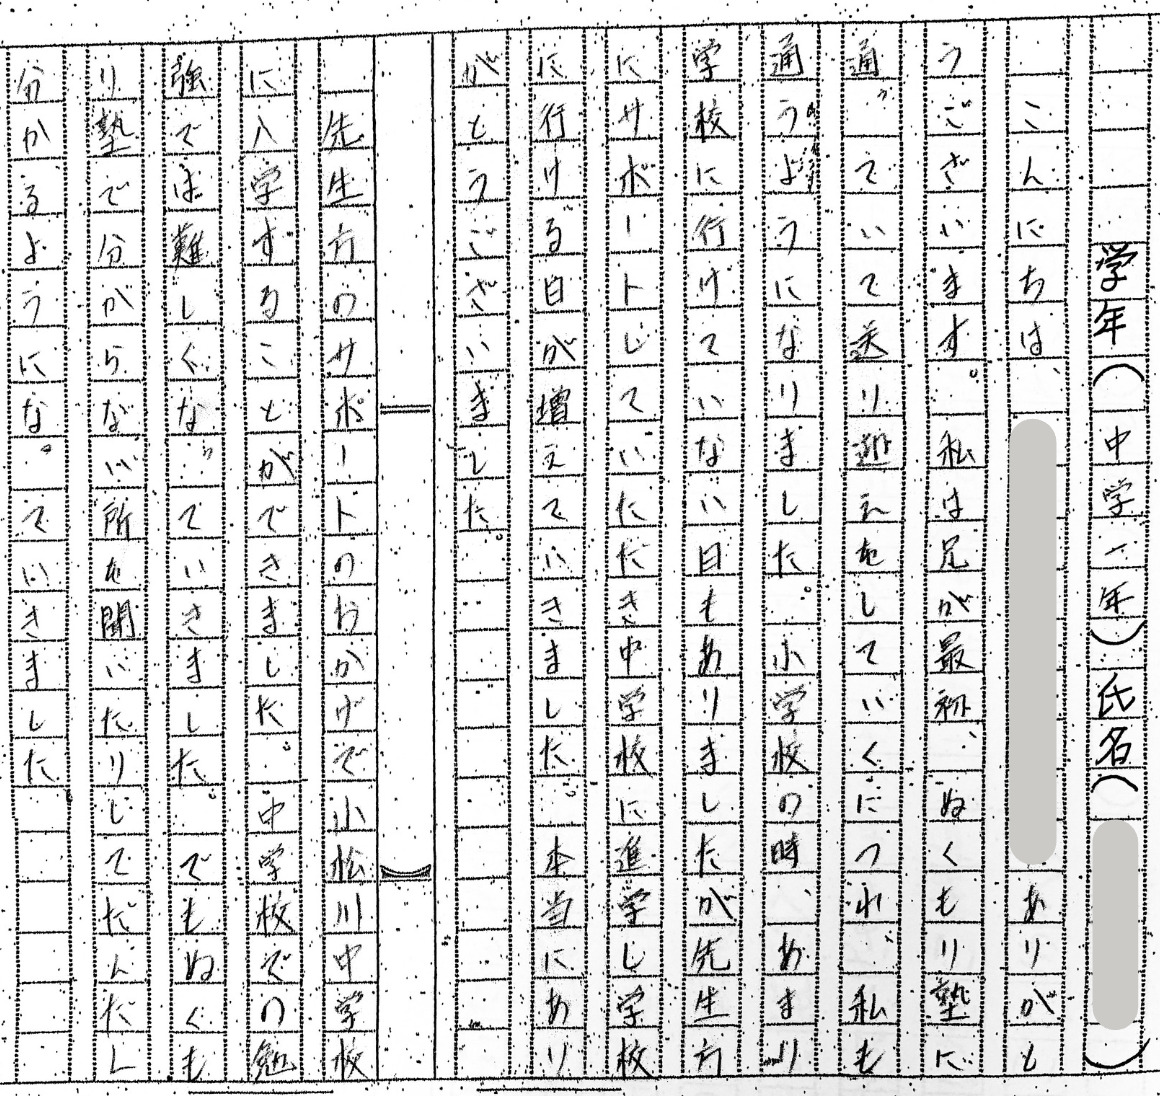 学年(中学一年)氏名(　)
こんにちは、　ありがと
うございます。私は兄が最初、ぬくもり塾に
通っていて送り迎えをしていくにつれ、私も
通うようになりました。小学校の時、あまり
学校に行けていない日もありましたが先生方
にサポートしていただき中学校に進学し学校
に行ける日が増えていきました。本当にあり
がとうございました。
先生方のサポートのおかげで小松川中学校
に入学することができました。中学校での勉
強では難しくなっていきました。でもぬくも
り塾で分がらない所を聞いたりしてだんだん
分かるようになっていきました